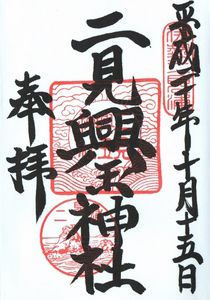 平成二十年十月十五日
二見興玉神社
奉拝